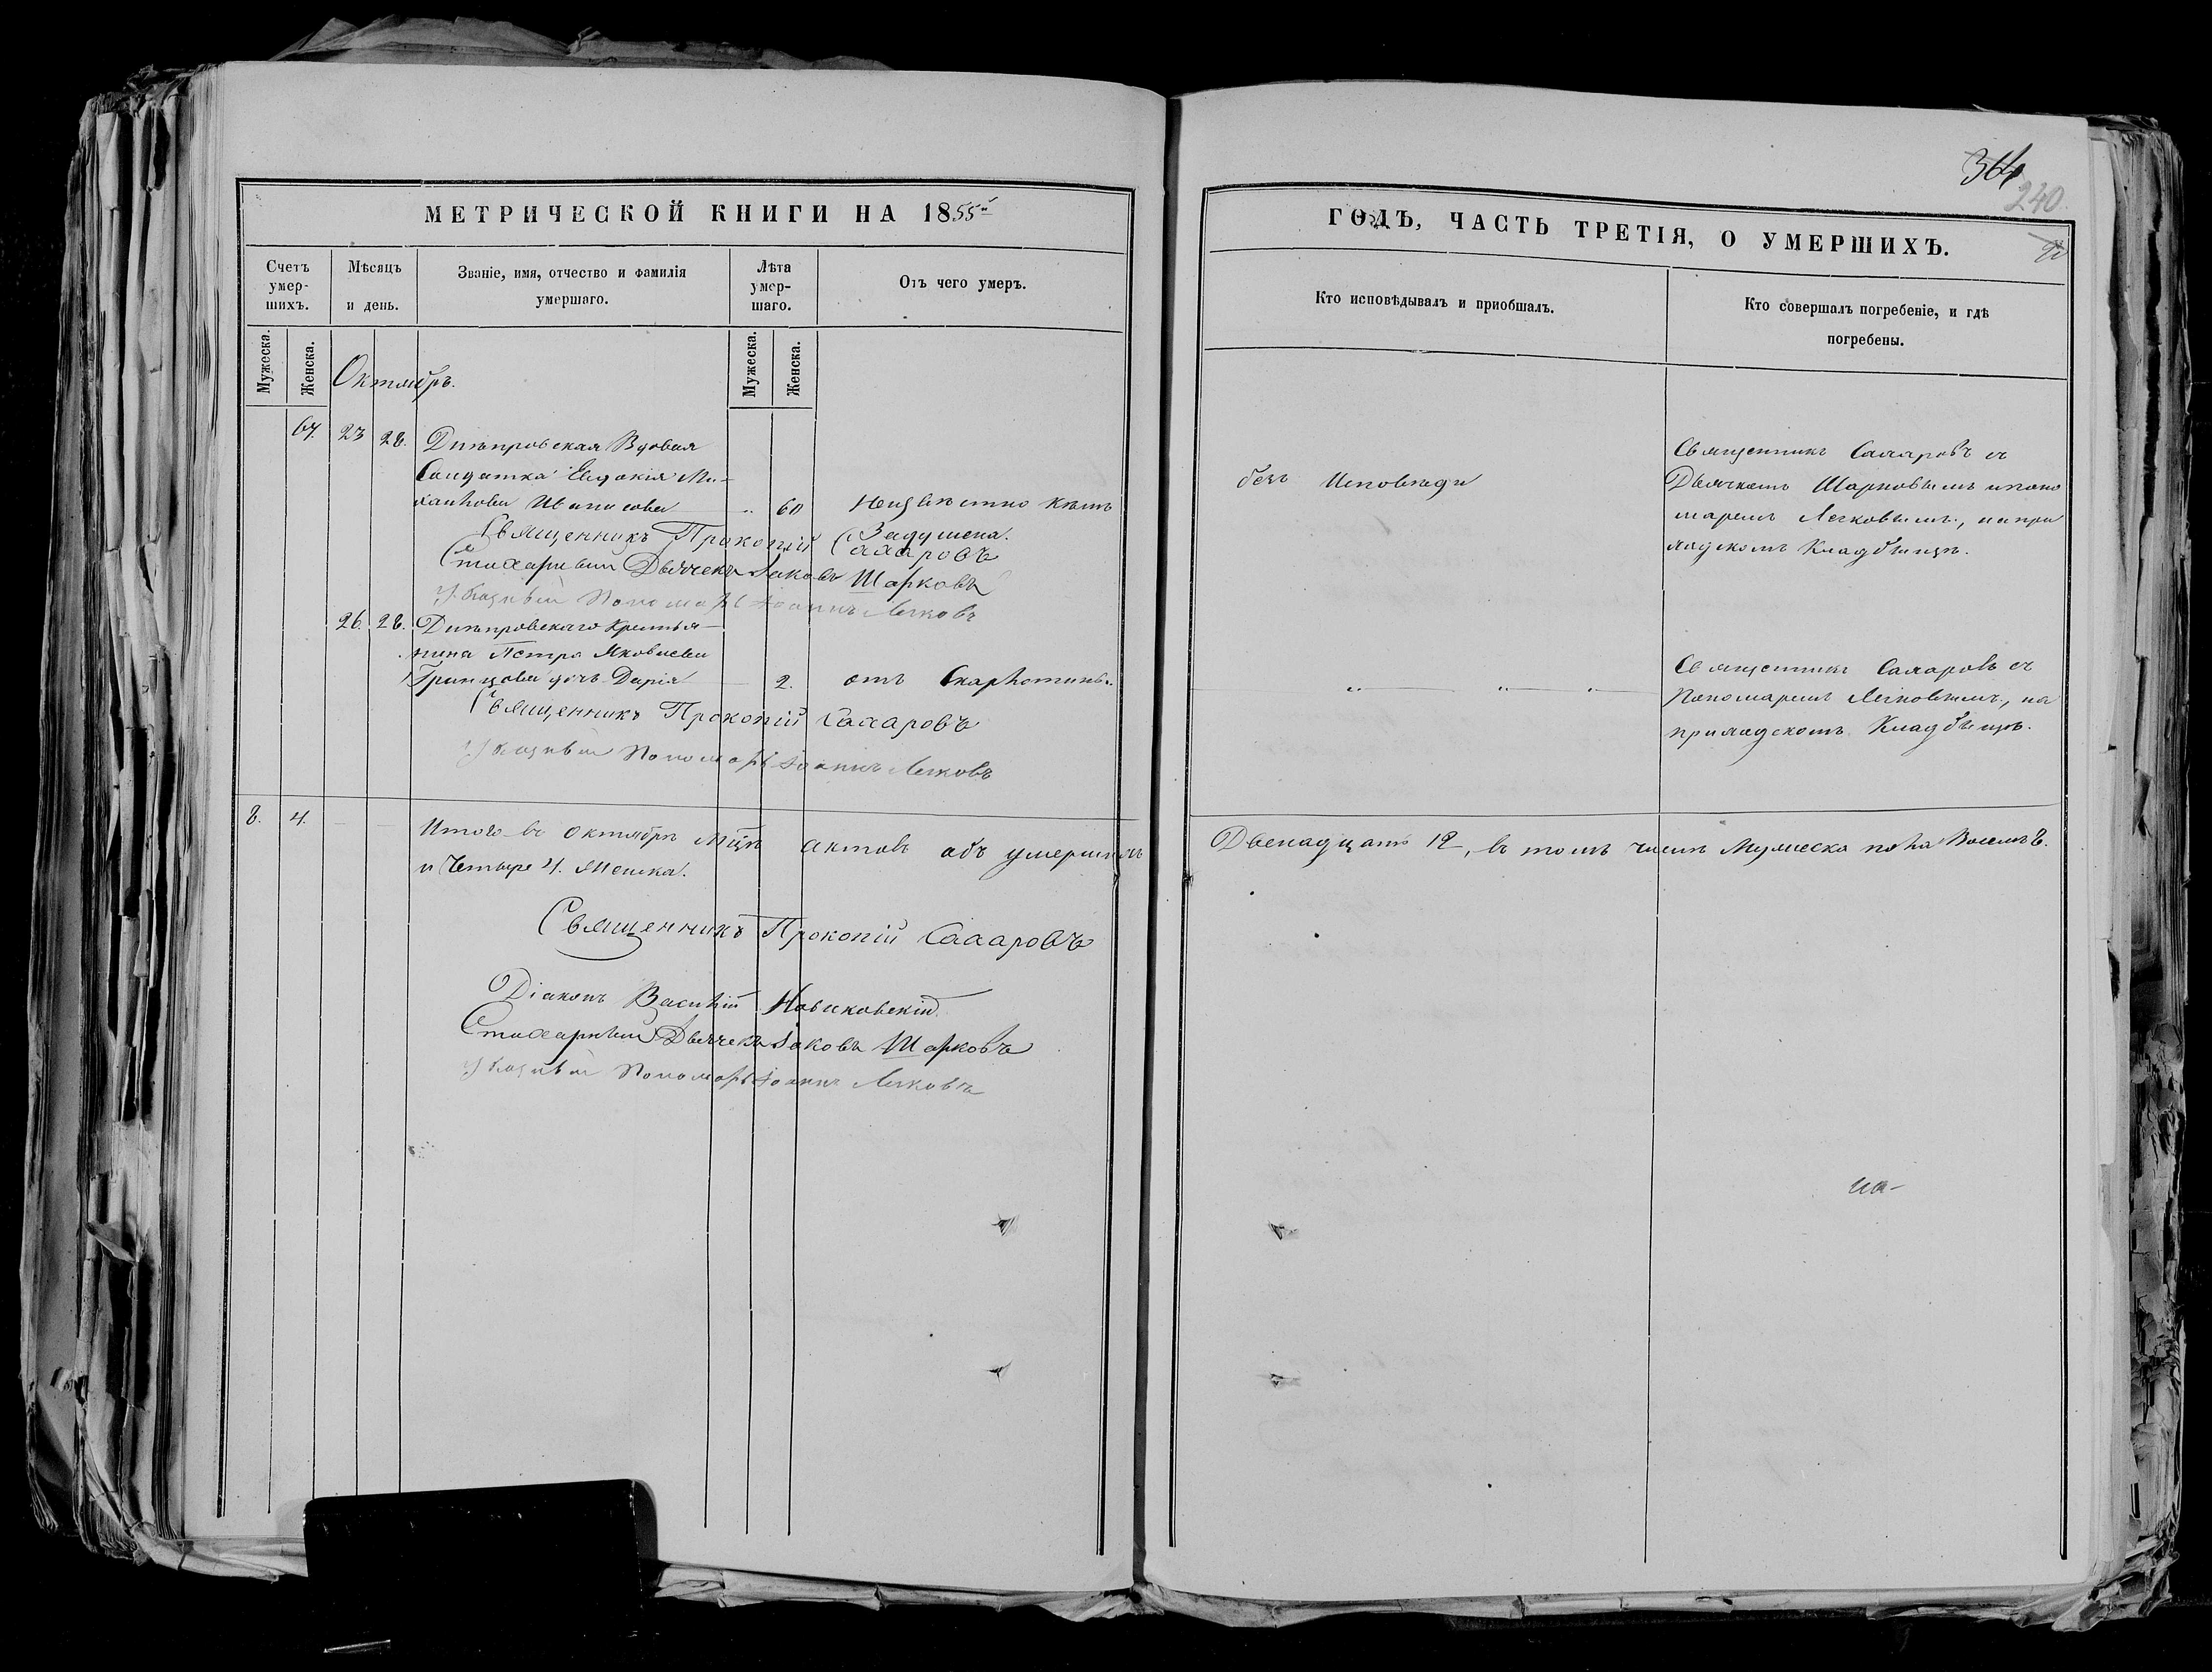 364
240
МЕТРИЧЕСКОЙ КНИГИ НА 1855й
ГОДЪ, ЧАСТЬ ТРЕТІЯ, О УМЕРШИХЪ.
Счетъ умер-шихъ.
Мѣсяцъ и день.
Званіе, имя, отчество и фамилія умершаго.
Лѣта умер-шаго.
Отъ чего умеръ.
Кто исповѣдывалъ и пріобщалъ.
Кто совершалъ погребеніе, и гдѣ погребены.
Мужеска.
Женска.
Мужеска.
Женска.
Октябрь.
67. 23 28. Днѣпровская Вдовая
Солдатка Евдокія Ми-
хайлова 60 Неизвѣстно кѣмъ
Задушена.
безъ Исповѣди
Священникъ Сахаровъ съ
Дьячкомъ Шарковымъ и поно
маремъ Легковымъ, на при
ходскомъ Кладбищѣ.
Священникъ Прокопій Сахаровъ
Стихарный Дьячекъ Іаковъ Шарковъ
Указный Пономарь Іоаннъ Легковъ
26. 28. Днѣпровскаго Крестья-
нина Петра Яковлева
Гринцова дочь Дарія 2. отъ Скарлотины.
Священникъ Сахаровъ съ
Пономаремъ Легковымъ, на
приходскомъ Кладбищѣ.
Священникъ Прокопій Сахаровъ
Указный Пономарь Іоаннъ Легковъ
8. 4. Итого въ Октябрѣ Мцѣ актовъ объ умершихъ Двенадцать 12, въ томъ числѣ Мужеска пола Восемь 8.
и Четыре 4. Женска.
Священникъ Прокопій Сахаровъ
Діаконъ Василій Новиковскій
Стихарный Дьячекъ Іаковъ Шарковъ
Указный Пономарь Іоаннъ Легковъ